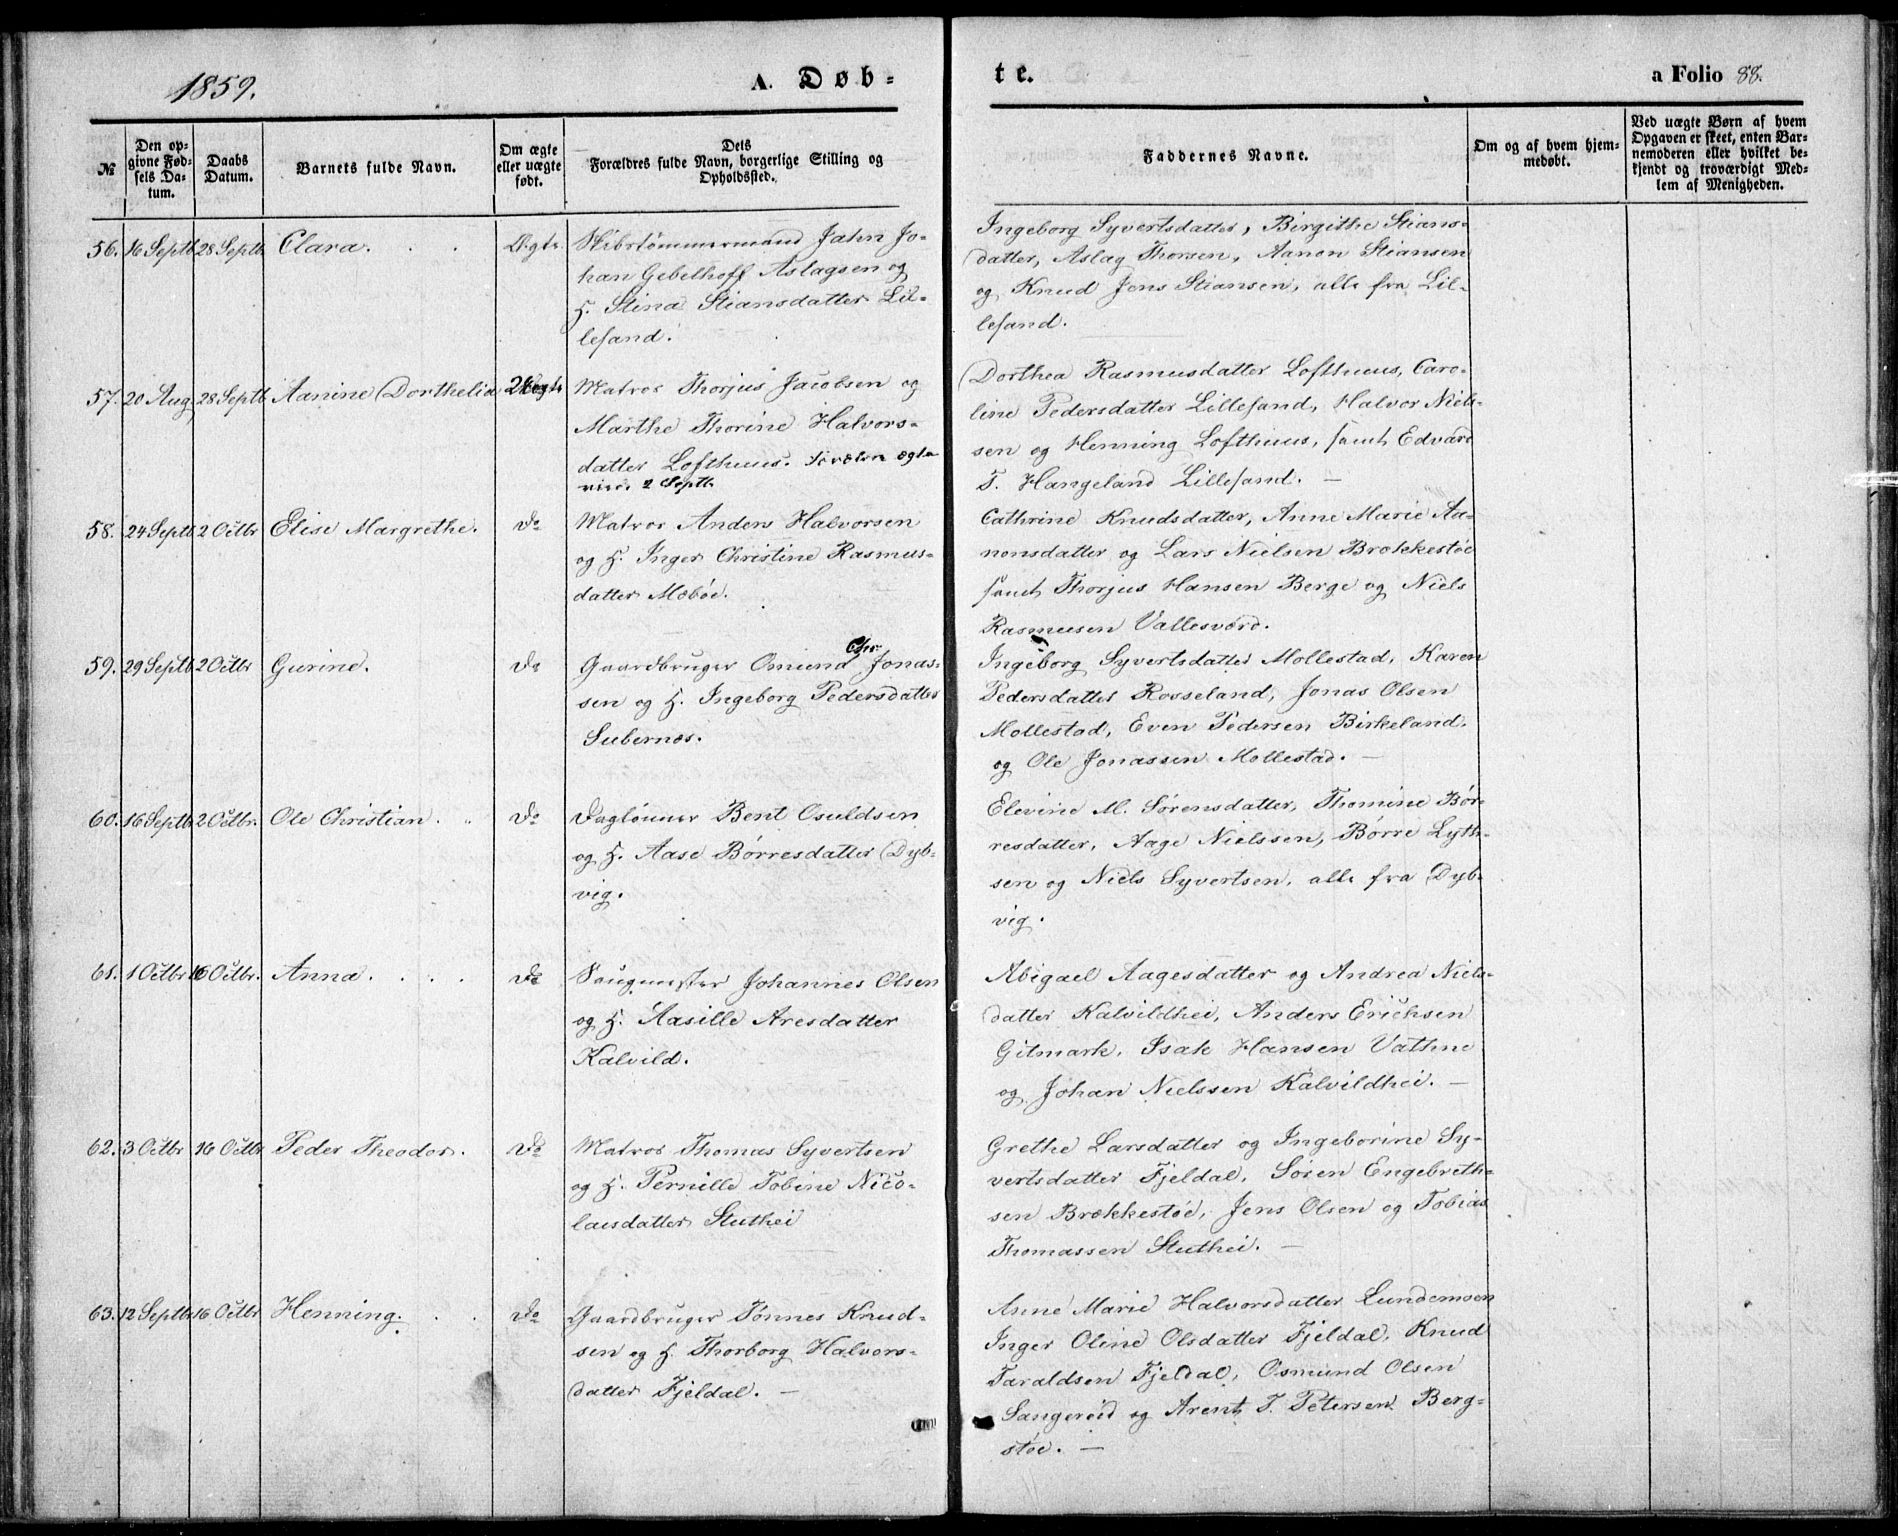 1859.
A. Døb-
te.
a Folio 88.
№
Den op-
givne Fød-
sels Da-
tum.
Daabs
Datum.
Barnets fulde Navn.
Om ægte
eller uægte
født.
Dets
Forældres fulde Navn, borgerlige Stilling og
Opholdssted.
Faddernes Navne.
Om og af hvem hjem-
medøbt.
Ved uægte Børn af hvem
Opgaven er skeet, enten Bar-
nemoderen eller hvilket be-
kjendt og troværdigt Med-
lem af Menigheden.
56. 16 Septb 28 Septb. Clara. Ægte.
Skibstømmermand Jahn Jo-
han Gebelhoff Aslagsen og
H. Stina Stiansdatter Lil-
lesand.
Ingeborg Syvertsdatter, Birgithe Stians-
datter, Aslag Thorsen, Aanon Stiansen
og Knud Jens Stiansen, alle fra Lil-
lesand.
57. 20 Aug 28 Septb Aanine Dorthelia
Matros Thorjus Jacobsen og
Marthe Thorine Halvors-
datter Lofthuus. Foræld. ægte
viede 2 Septb.
Dorthea Rasmusdatter Lofthuus, Caro-
line Pedersdatter Lillesand, Halvor Niels-
sen og Henning Lofthuus, samt Edvard
T. Hangeland Lillesand. —
58. 24 Septb 2 Octbr Elise Margrethe. Do
Matros Anders Halvorsen
og H. Inger Christine Rasmus-
datter Mæbøe.
Cathrine Knudsdatter, Anne Marie Aa-
nonsdatter og Lars Nielsen Brækkestøe
samt Thorjus Hansen Berge og Niels
Rasmusen Vallesværd.
59. 29 Septb 2 Octbr Gurine. Do
Gaardbruger Omund Chr. Jonas-
sen og H. Ingeborg Pedersdatter
Subernæs.
Ingeborg Syvertsdatter Mollestad, Karen
Pedersdatter Rosseland, Jonas Olsen
Mollestad, Even Pedersen Birkeland.
og Ole Jonassen Mollestad. —
60. 16 Septb 2 Octbr. Ole Christian. Do
Daglønner Bent Osuldsen
og H. Aase Børresdatter Dyb-
vig.
Elevine M. Sørensdatter, Thomine Bør-
resdatter, Aage Nielssen, Børre Lyth-
sen og Niels Syvertsen, alle fra Dyb-
vig.
61. 1 Octbr 16 Octbr. Anna. Do
Saugmester Johannes Olsen
og H. Aasille Aresdatter
Kalvild.
Abigael Aagesdatter og Andrea Niels-
datter Kalvildhei, Anders Erichsen
Gitmark, Isak Hansen Vathne
og Johan Nielssen Kalvildhei. —
62. 3 Octbr 16 Octbr Peder Theodor. Do
Matros Thomas Syvertsen
og H. Pernille Tobine Nico-
laisdatter Stuthei
Grethe Larsdatter og Ingeborine Sy-
vertsdatter Fjeldal, Søren Engebreth-
sen Brækkestøe, Jens Olsen og Tobias
Thomassen Stuthei. —
63. 12 Septbr 16 Octbr Henning. Do
Gaardbruger Tønnes Knud-
sen og H. Thorborg Halvors-
datter Fjeldal. —
Anne Marie Halvorsdatter Lundemoen
Inger Oline Olsdatter Fjeldal, Knud
Taraldsen Fjeldal, Osmund Olsen
Sangerøid og Arent T. Petersen Berg-
støe. —